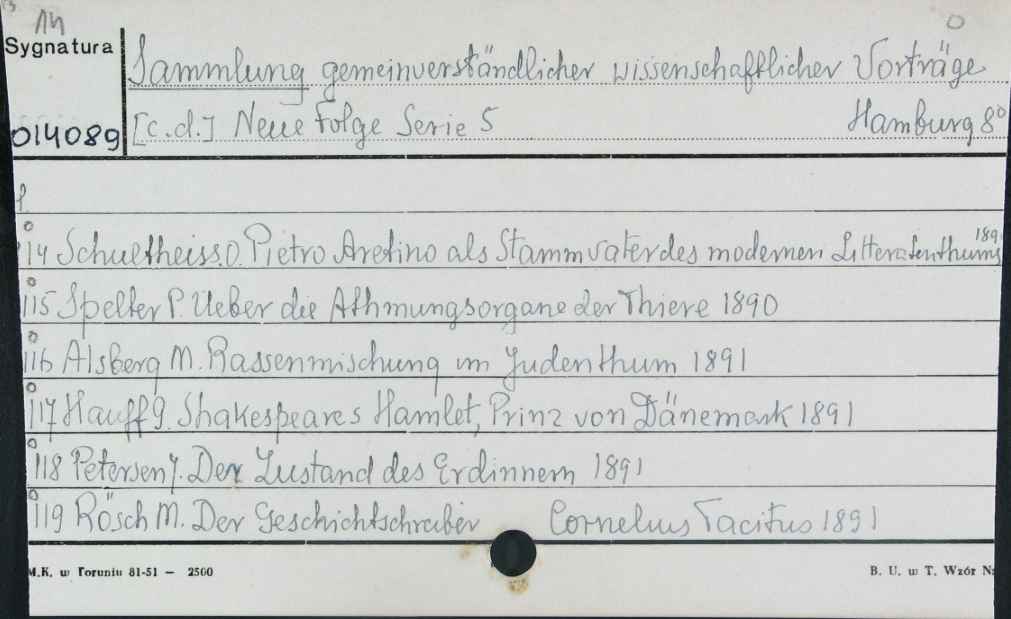 14
Sygnatura
Sammlung gemeinverständlicher wissenschaftlicher Vorträge
014089
[c.d.] Neue Folge Serie 5 Hamburg 8°
114 Schultheiss O. Pietro Aretino als Stammvater des modernen Litteratenthums 189
115 Spelter P. Ueber die Athmungsorgane der Thiere 1890
116 Alsberg M. Rassenmischung im Judenthum 1891
117 Hauff G. Shakespeares Hamlet, Prinz von Dänemark 1891
118 Petersen J. Der Zustand des Erdinnern 1891
119 Rösch M. Der Geschichtschreiber Cornelius Tacitus 1891
M.K. w Toruniu 81-51 — 2500
B. U. w T. Wzór Nr